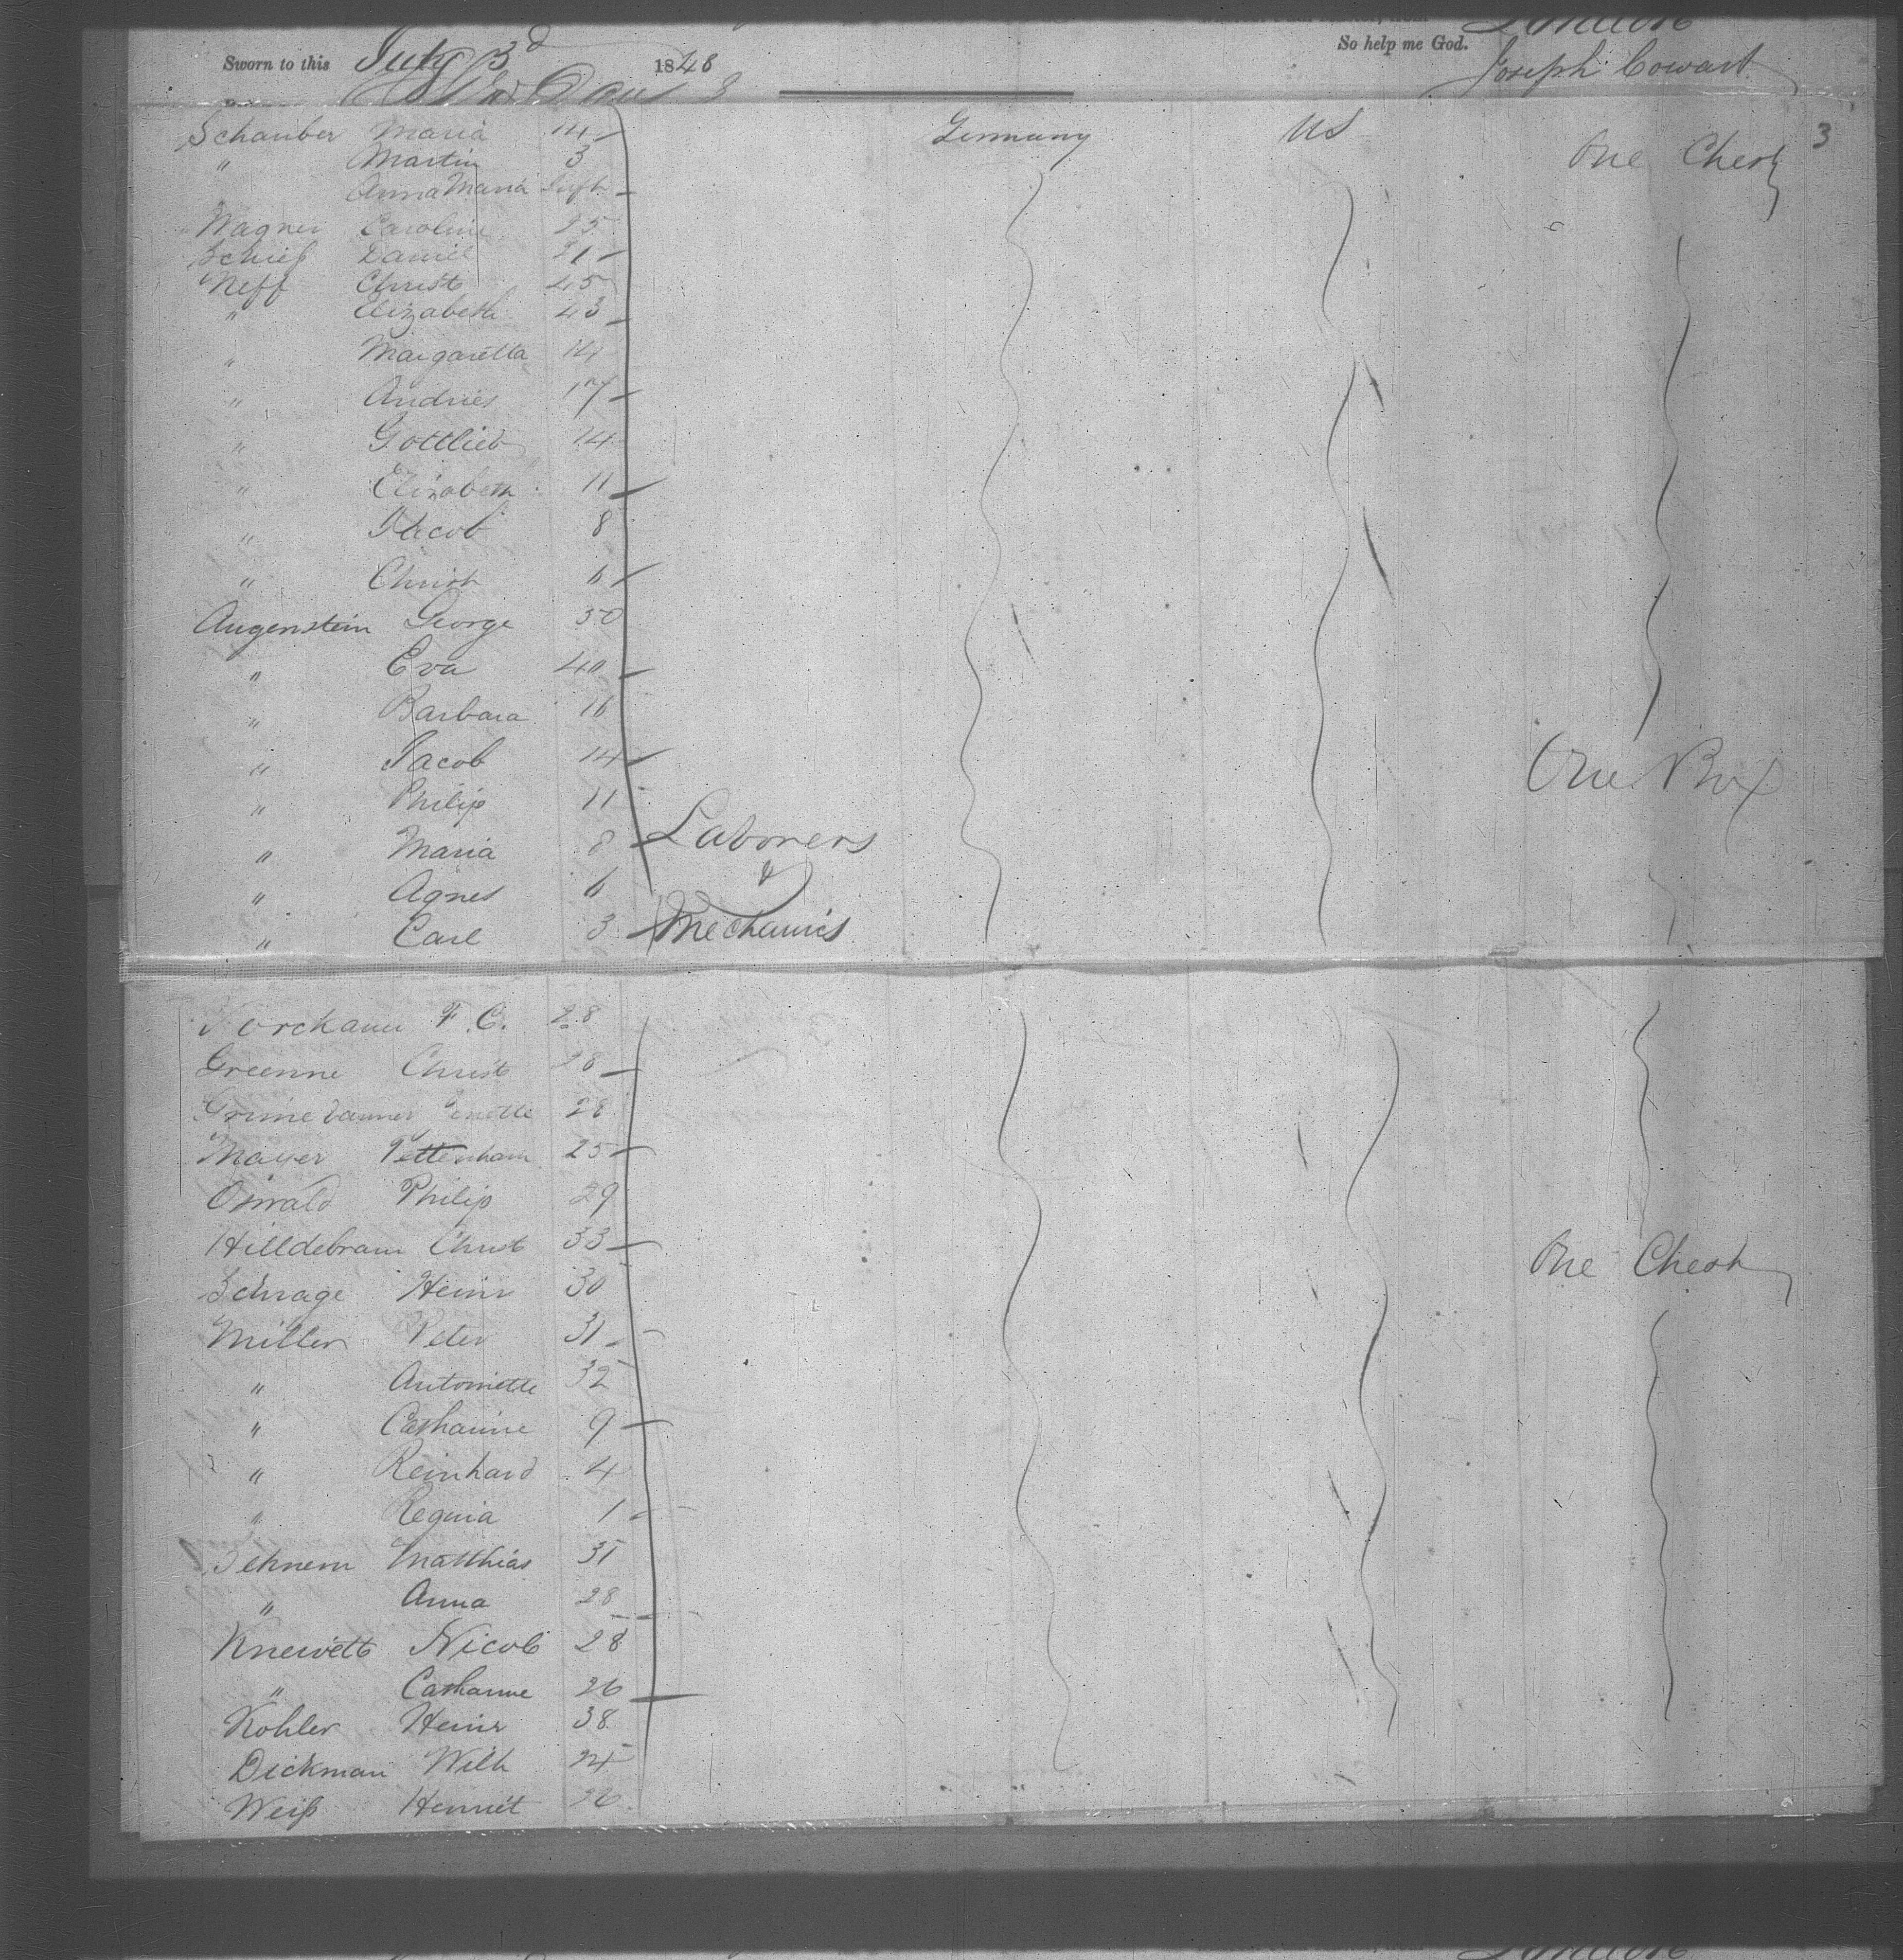 London
So help me God.
Sworn to this July 3d 1848
Joseph Cowart
3
Schauber Maria 14 Germany US One Chest
" Martin 3
Anna Maria Inft
Wagner Caroline 25
Schieß Daniel 21
Neff Christ 45
" Elizabeth 43
" Margaretta 14
" Andries 17
" Gottlieb 14
" Elizabeth 11
" Jacob 8
" Christ 6
Augenstein George 50
" Eva 40
" Barbara 16
" Jacob 14 One Box
" Philip 11
" Maria 8 Laborers
" Agnes 6 &
" Carl 3 Mechanics
F. C. 28
Greenne Christ 28
28
Mayer Pettenham 25
Oswald Philip 29
Hilldebran Christ 33 One Chest
Schrage Heinr 30
Miller Peter 31
" Antoinette 32
" Catharine 9
" Reinhard 4
" Regina 1
Matthias 31
" Anna 28
Knewetts Nicol 28
" Catharine 26
Kohler Heinr 38
Dickman Wilh 24
Weiß Henriet 26